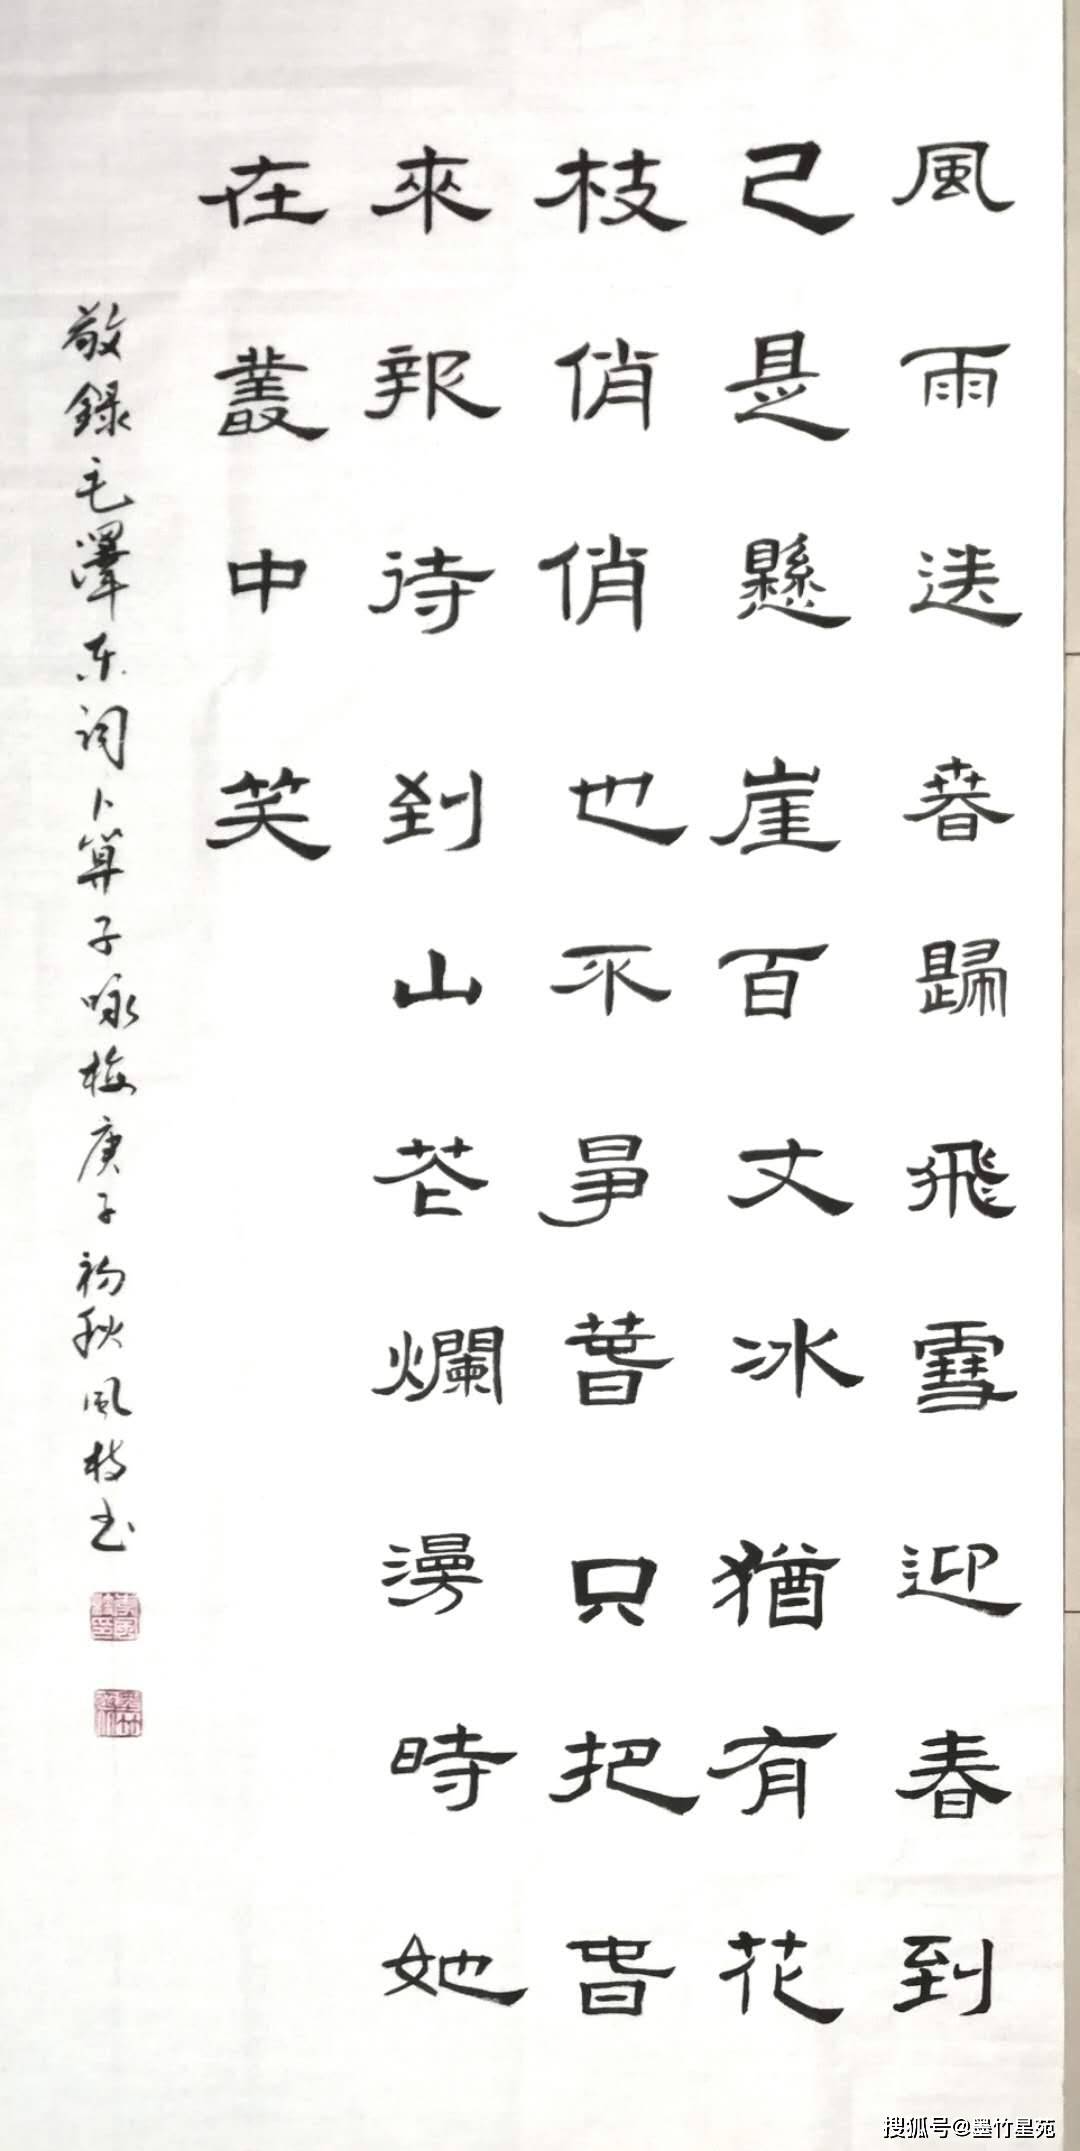 風雨送春歸飛雪迎春到
己是懸崖百丈冰猶有花
枝俏俏也不爭春只把春
來報待到山花爛漫時她
在叢中笑
敬錄毛澤东词卜算子咏梅庚子初秋風枝书
搜狐号@墨竹星苑